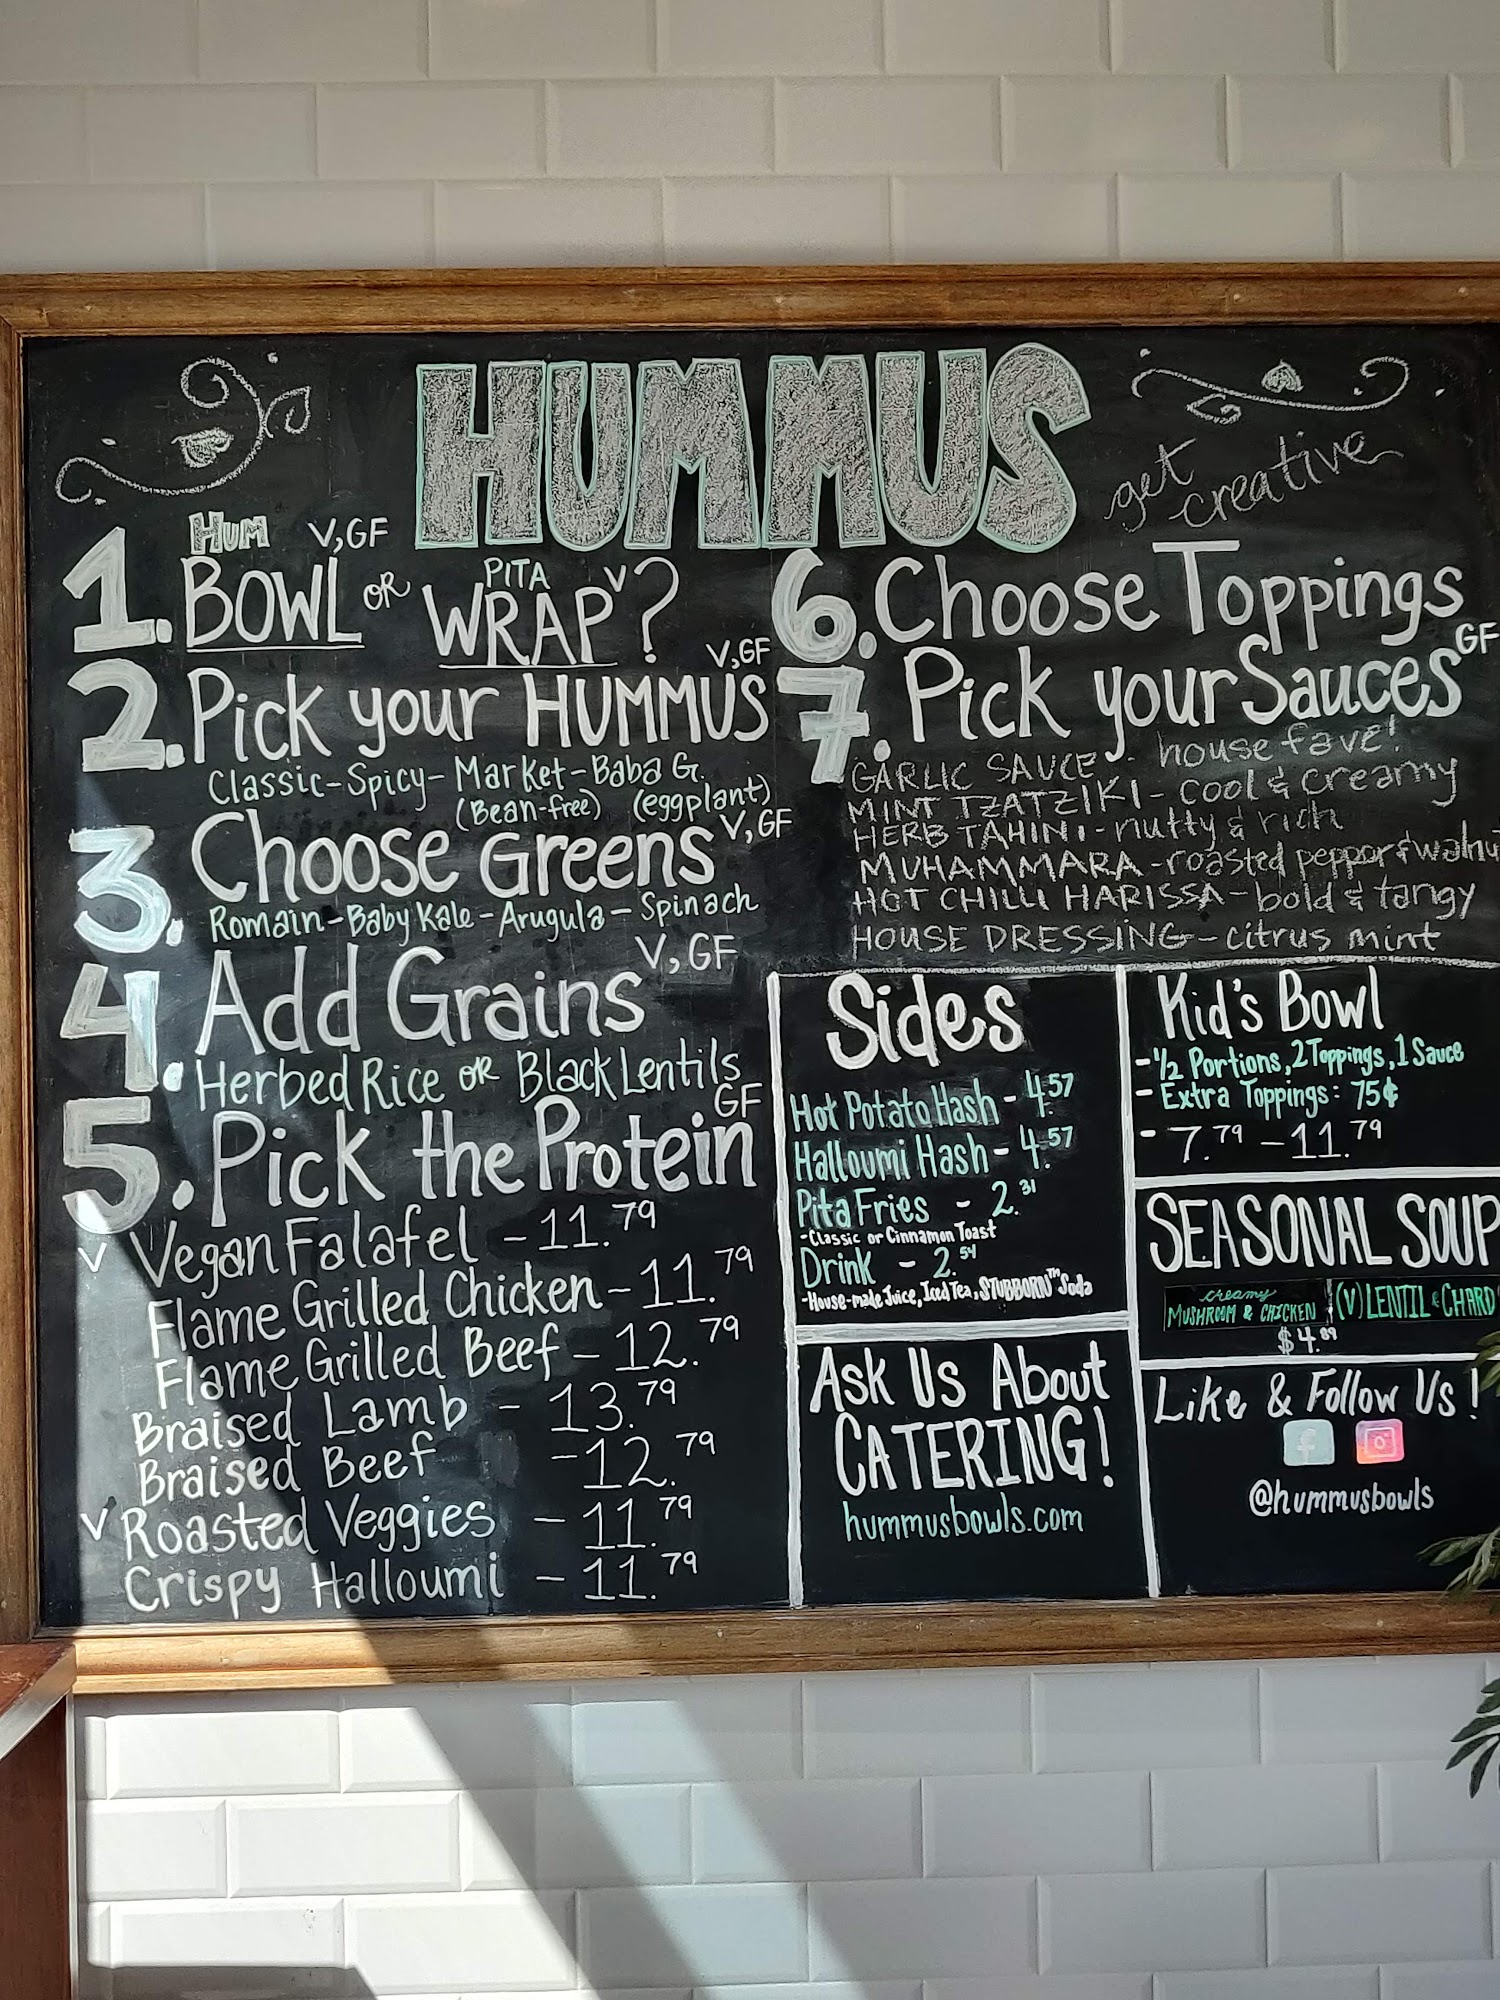 HUMMUS
get
creative
1. HUM BOWL V,GF OR PITA WRAP V ?
2. Pick your HUMMUS V,GF
Classic-Spicy-Market-Baba G.
(Bean-free) (eggplant)
3. Choose Greens V,GF
Romain-Baby Kale-Arugula-Spinach
4. Add Grains V,GF
Herbed Rice OR Black Lentils
5. Pick the Protein GF
V Vegan Falafel - 11.79
Flame Grilled Chicken - 11.79
Flame Grilled Beef - 12.79
Braised Lamb - 13.79
Braised Beef - 12.79
V Roasted Veggies - 11.79
Crispy Halloumi - 11.79
6. Choose Toppings
7. Pick your Sauces GF
GARLIC SAUCE - house fave!
MINT TZATZIKI - cool & creamy
HERB TAHINI - nutty & rich
MUHAMMARA - roasted peppor & walnu
HOT CHILLI HARISSA - bold & tangy
HOUSE DRESSING - citrus mint
Sides
Hot Potato Hash - 4.57
Halloumi Hash - 4.57
Pita Fries - 2.31
-Classic or Cinnamon Toast
Drink - 2.54
-House-made Juice, Iced Tea, STUBBORN™ Soda
Ask Us About
CATERING!
hummusbowls.com
Kid's Bowl
- ½ Portions, 2 Toppings, 1 Sauce
- Extra Toppings: 75¢
- 7.79 - 11.79
SEASONAL SOUP
creamy
MUSHROOM & CHICKEN (V) LENTIL & CHARD
$4.09
Like & Follow Us!
f
@hummusbowls